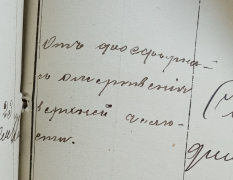 Отъ фосфорна-
го омертвѣнія
верхней челю-
сти.